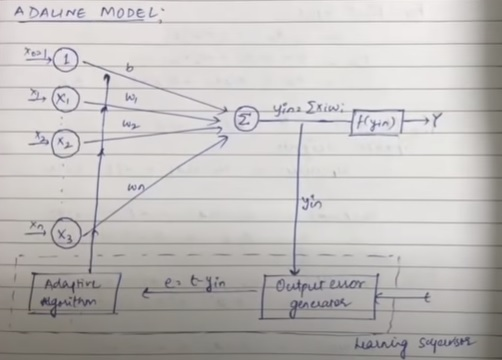 ADALINE MODEL:
x0=1 1 b
x1 X1 w1
x2 X2 w2
Σ yin = Σxiwi f(yin) Y
xn X3 wn
yin
Adaptive algorithm e = t-yin Output error generator t
Learning Supervisor